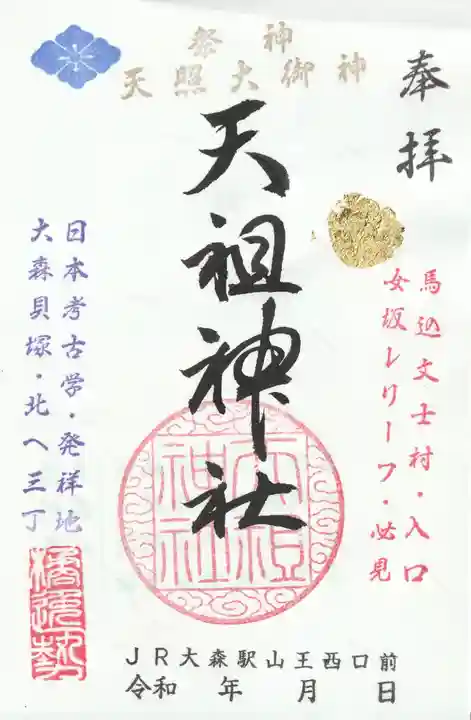 祭神
天照大御神
奉拝
馬込文士村・入口
女坂レリーフ・必見
天祖神社
天祖
神社
日本考古学・発祥地
大森貝塚・北へ三丁
JR大森駅山王西口前
令和 年 月 日